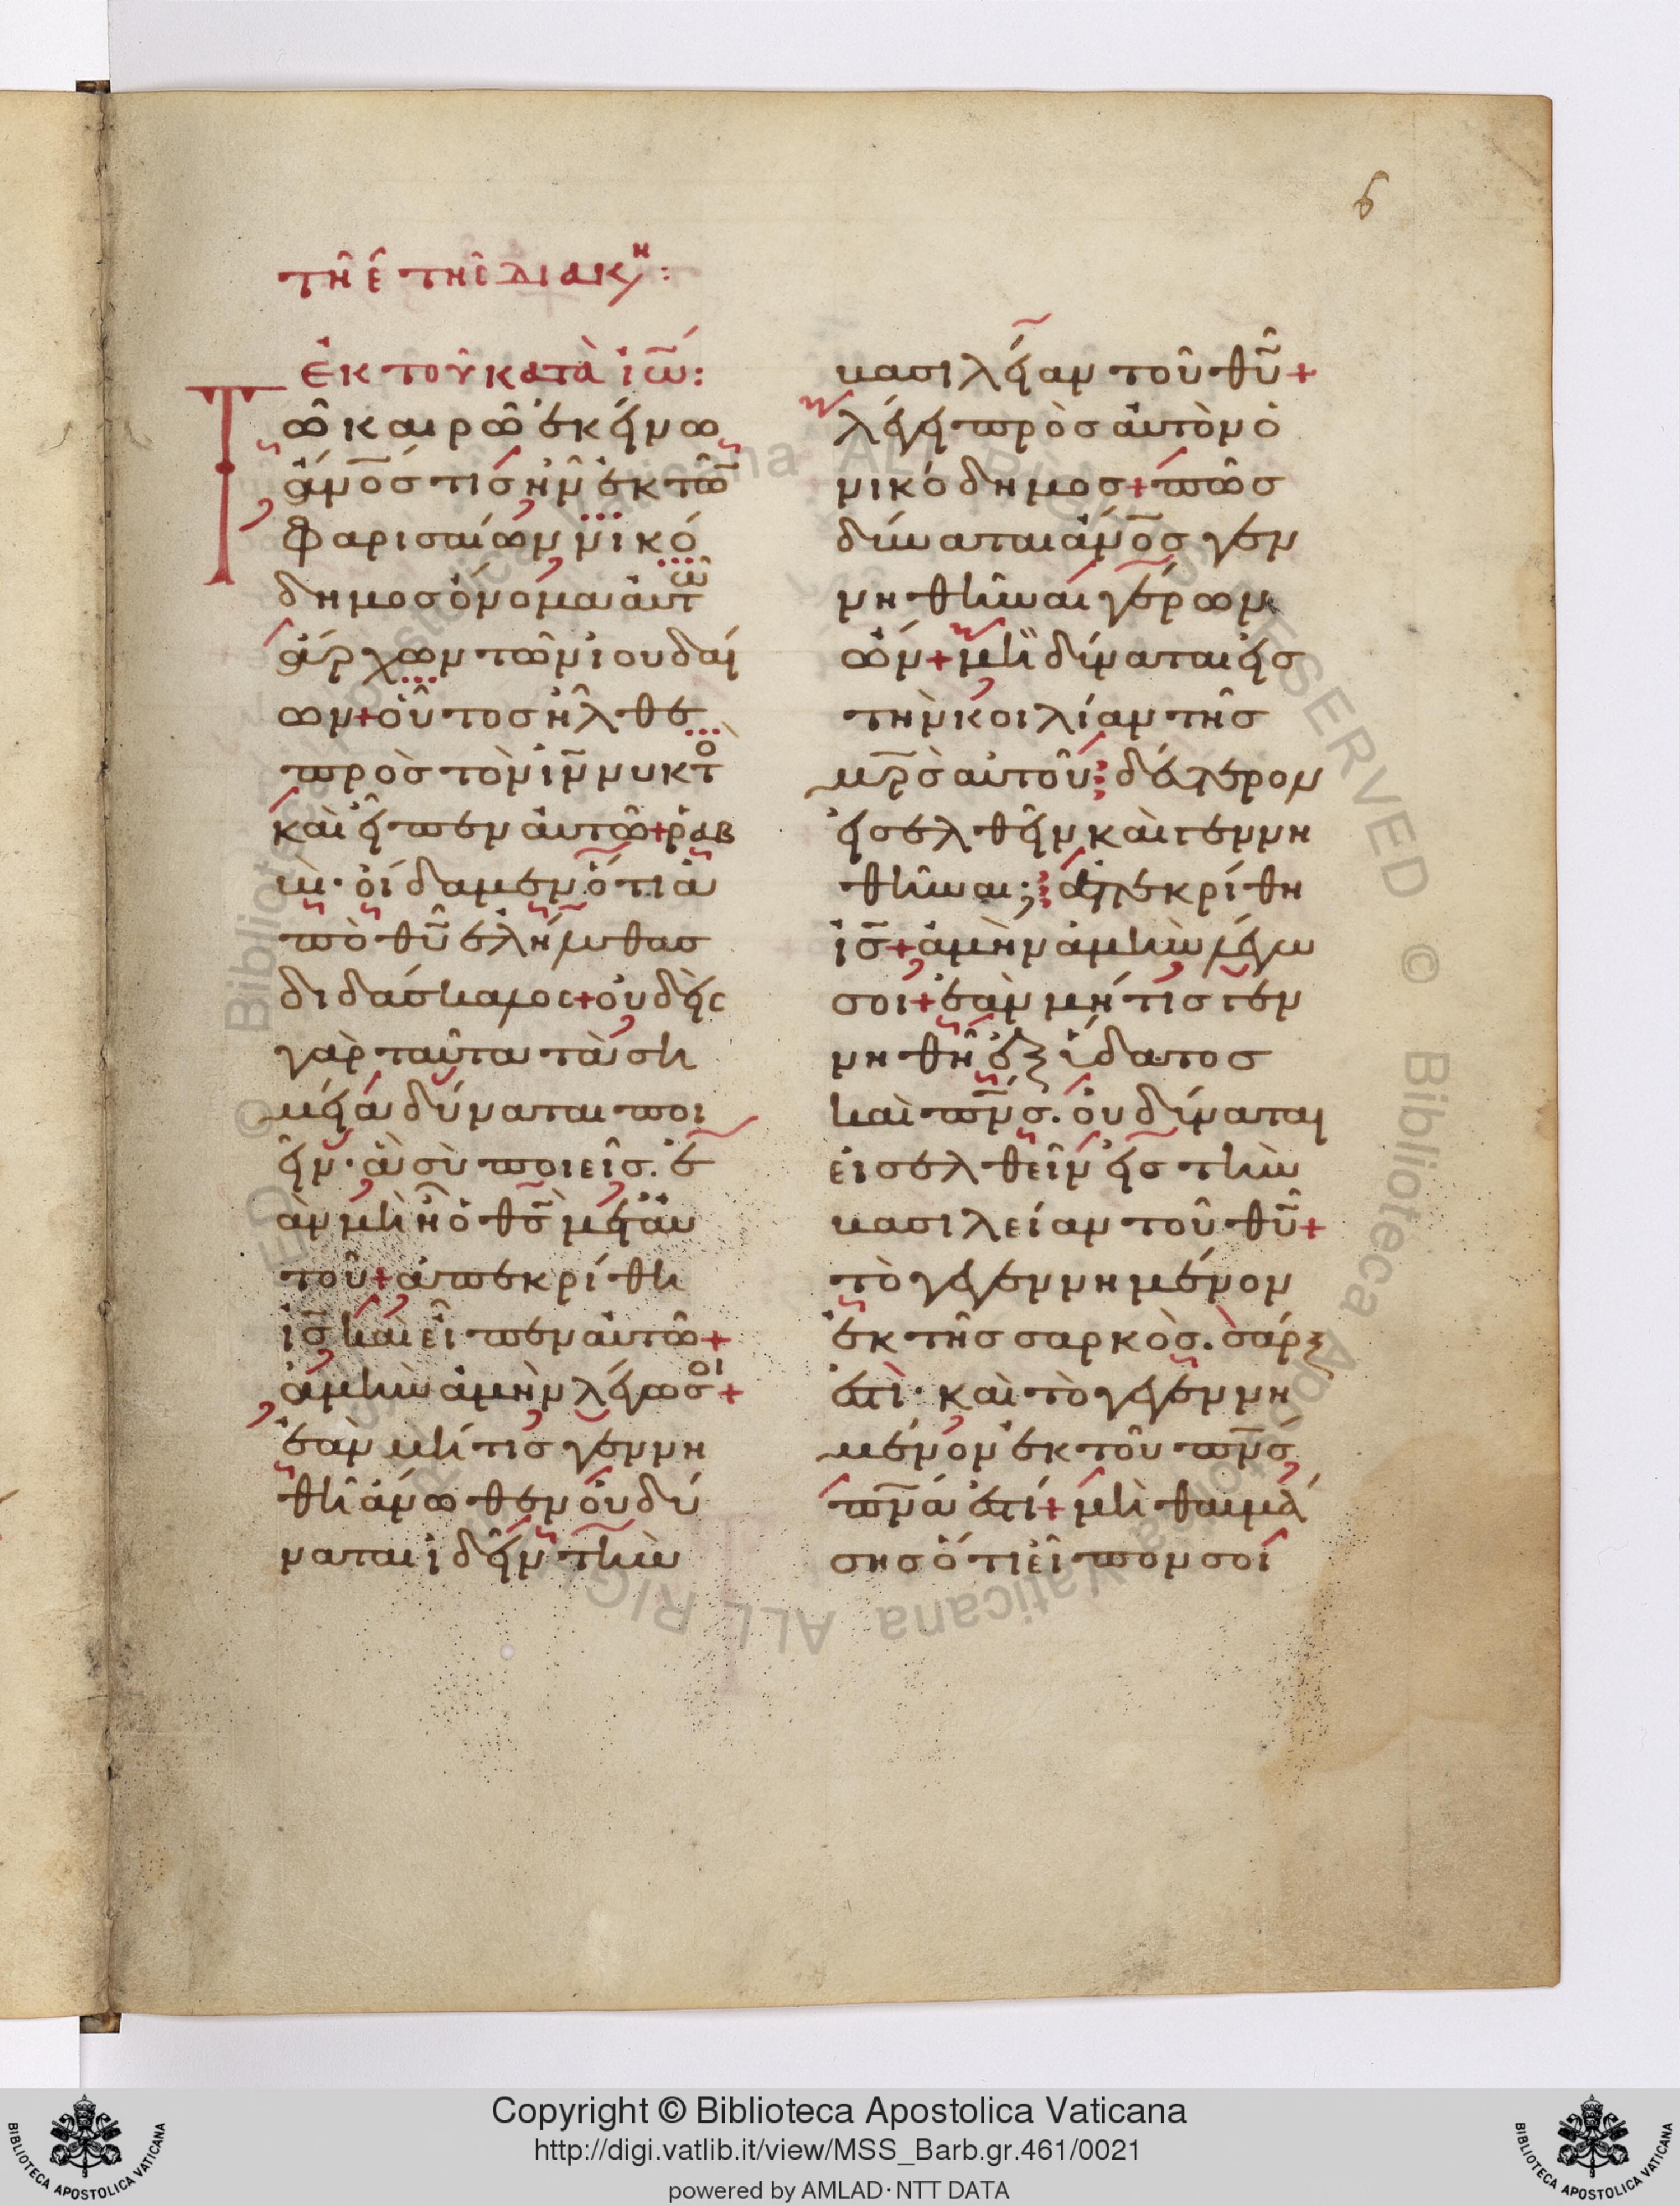 6
τῆ ε̂ τῆς διακˢⁿ:
ἐκ τοῦ κατὰ ἰω̅:
Τ
ῶ καιρῶ ἐκείνω
ἄν̅ο̅ς τὶς ἦν ἐκ τῶ̅
φαρισαίων νϊκό
δημος ὄνομα αὐτῶ
ἄρχων τῶν ἰουδαί
ων+οὗτος ἦλθε
πρὸς τὸν ι̅ν̅ νυκτὸ
καὶ εἶπεν αὐτῶ+ῥαβ
βὶ· οἴδαμεν ὅτι ἀ
πὸ θ̅υ̅ ἐλήλυθας
διδάσκαλος+οὐδεὶς
γὰρ ταῦτα τὰ ση
μεῖα δύναται ποι
εῖν· ἃ σὺ ποιεῖς. ἐ
ὰν μὴ ἦ ὁ θ̅ς̅ μετ' αὐ
τοῦ+ἀπεκρίθη
ι̅ς̅ καὶ εἶπεν αὐτῶ+
ἀμὴν ἀμὴν λέγω σοι+
ἐὰν μή τις γεννη
θῆ ἄνωθεν οὐ δύ
ναται ἰδεῖν τὴν
βασιλείαν τοῦ θ̅υ̅+
λέγει πρὸς αὐτὸν ὁ
νικόδημος+πῶς
δύναται ἄν̅ο̅ς γεν
νηθῆναι γέρων
ὤν+μὴ δύναται εἰς
τὴν κοιλίαν τῆς
μ̅ρ̅ς̅ αὐτοῦ δεύτερον
εἰσελθεῖν καὶ γεννη
θῆναι; ἀπεκρίθη
ι̅ς̅+ἀμὴν ἀμὴν λέγω
σοι+ἐὰν μή τις γεν
νηθῆ ἐξ ὕδατος
καὶ π̅ν̅ς̅. οὐ δύναται
εἰσελθεῖν εἰς τὴν
βασιλείαν τοῦ θ̅υ̅+
τὸ γεγεννημένον
ἐκ τῆς σαρκὸς. σάρξ
ἐστὶ· καὶ τὸ γεγεννη
μένον ἐκ τοῦ π̅ν̅ς̅
π̅ν̅ά̅ ἐστί+μὴ θαυμά
σης ὅτι εἶπον σοί
Copyright © Biblioteca Apostolica Vaticana
http://digi.vatlib.it/view/MSS_Barb.gr.461/0021
powered by AMLAD·NTT DATA